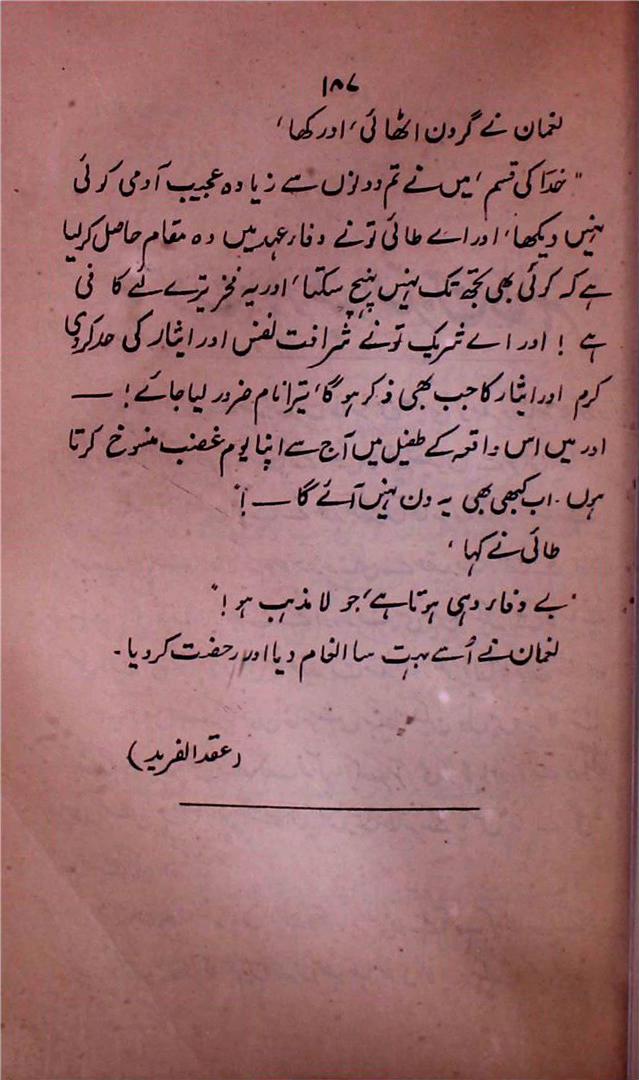 ۱۸۷
نعمان نے گردن اٹھائی، اور کہا،
"خدا کی قسم، میں نے تم دونوں سے زیادہ عجیب آدمی کوئی
نہیں دیکھا، اور اے طائی تو نے وفاء عہد میں وہ مقام حاصل کرلیا
ہے کہ کوئی بھی تجھ تک نہیں پہنچ سکتا، اور یہ فخر تیرے لئے کافی
ہے! اور اے شریک تو نے شرافت نفس اور ایثار کی حد کردی
کرم اور ایثار کا جب بھی ذکر ہوگا، تیرا نام ضرور لیا جائے! —
اور میں اس واقعہ کے طفیل میں آج سے اپنا یوم غضب منسوخ کرتا
ہوں۔ اب کبھی بھی یہ دن نہیں آئے گا — !"
طائی نے کہا،
"بے وفا وہی ہوتا ہے، جو لا مذہب ہو!"
نعمان نے اُسے بہت سا انعام دیا اور رخصت کردیا۔
(عقد الفرید)